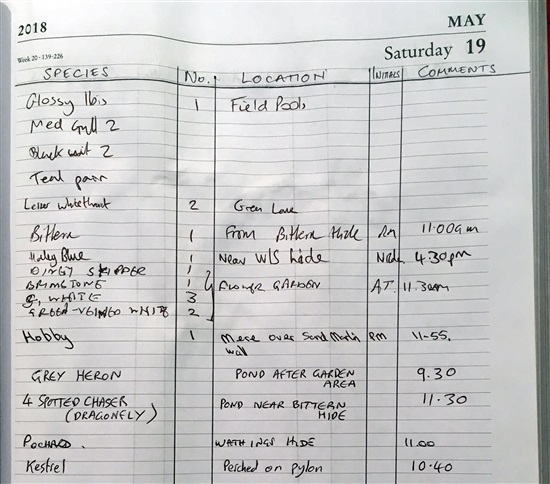 2018 MAY
Saturday 19
Week 20 · 139-226
SPECIES No. LOCATION INITIALS COMMENTS
Glossy Ibis 1 Field Pools
Med Gull 2
Black wit 2
Teal pair
Lesser Whitethroat 2 Green Lane
Bittern 1 From Bittern Hide 11.00am
Holly Blue 1 Near WLS hide 4.30pm
DINGY SKIPPER 1
BRIMSTONE 1 FLOWER GARDEN AT 11.30am
S, WHITE 3
GREEN-VEINED WHITE 2
Hobby 1 Mere over Sand Martin RM 11-55.
wall
GREY HERON POND AFTER GARDEN 9.30
AREA
4 SPOTTED CHASER POND NEAR BITTERN 11.30
(DRAGONFLY) HIDE
POCHARD. HIDE 11.00
Kestrel Perched on pylon 10.40